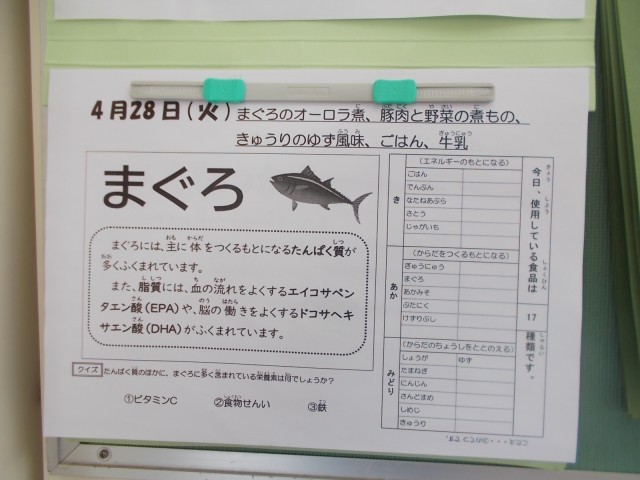 4月28日(火) まぐろのオーロラ煮、豚肉と野菜の煮もの、
きゅうりのゆず風味、ごはん、牛乳
まぐろ
まぐろには、主に体をつくるもとになるたんぱく質が
多くふくまれています。
また、脂質には、血の流れをよくするエイコサペン
タエン酸(EPA)や、脳の働きをよくするドコサヘキ
サエン酸(DHA)がふくまれています。
クイズ たんぱく質のほかに、まぐろに多く含まれている栄養素は何でしょうか?
①ビタミンC ②食物せんい ③鉄
き
(エネルギーのもとになる)
ごはん
でんぷん
なたねあぶら
さとう
じゃがいも
あか
(からだをつくるもとになる)
ぎゅうにゅう
まぐろ
あかみそ
ぶたにく
けずりぶし
みどり
(からだのちょうしをととのえる)
しょうが ゆず
たまねぎ
にんじん
さんどまめ
しめじ
きゅうり
今日、使用している食品は
17
種類です。
こたえ・・・③のてつです。